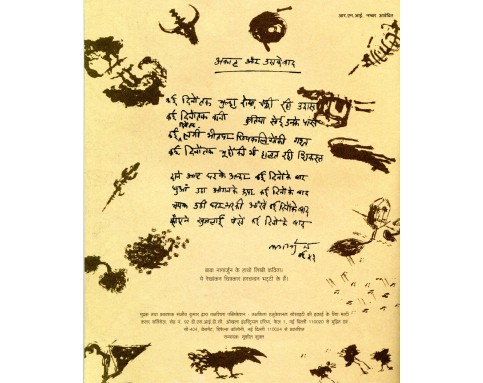 आर.एन.आई. नम्बर आवेदित
अकाल और उसके बाद
कई दिनों तक चूल्हा रोया, चक्की रही उदास
कई दिनों तक कानी कुतिया सोई उनके पास
कई दिनों तक लगी भीत पर छिपकलियों की गश्त
कई दिनों तक चूहों की भी हालत रही शिकस्त
दाने आए घर के अन्दर कई दिनों के बाद
धुआँ उठा आँगन से ऊपर कई दिनों के बाद
चमक उठीं घर भर की आँखें कई दिनों के बाद
कौए ने खुजलाई पाँखें कई दिनों के बाद
नागार्जुन
बाबा नागार्जुन के हाथों लिखी कविता।
ये रेखांकन चित्रकार भट्टी के हैं।
मुद्रक तथा प्रकाशक कुमार द्वारा
नई दिल्ली 110020 से मुद्रित एवं
नई दिल्ली 110024 से प्रकाशित
सम्पादक: सुशील शुक्ल